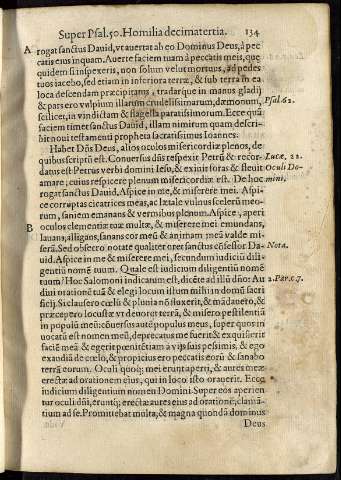 Super Psal. 50. Homilia decimatertia. 134
A rogat sanctus Dauid, vt auertat ab eo Dominus Deus, à pec
catis eius inquam. Auerte faciem tuam à peccatis meis, que
quidem si inspexeris, non solum velut mortuus, ad pedes
tuos iacebo, sed etiam in inferiora terræ, & sub terra in ea
loca descendam præcipitatus, tradarque in manus gladij
& pars ero vulpium illarum crudelissimarum, dæmonum, Psal. 62.
scilicet, in vindictam & flagella paratissimorum. Ecce quã
faciem timet sanctus Dauid, illam nimirum quam descri-
bit noui testamenti propheta sacratissimus Ioannes.
Habet Dñs Deus, alios oculos misericordiæ plenos, de
quibus scriptũ est. Conuersus dñs respexit Petrũ & recor- Lucæ. 22.
datus est Petrus verbi domini Iesu, & exiuit foras & fleuit Oculi Do-
amare, cuius respicere plenum misericordiæ est. De hoc mini.
rogat sanctus Dauid, Aspice in me, & miserere mei. Aspi-
ce corruptas cicatrices meas, ac lætale vulnus scelerũ meo-
rum, saniem emanans & vermibus plenum. Aspice, aperi
B oculos clementiæ tuæ multæ, & miserere mei emundans,
lauans, alligans, sanans cor meũ & animam meã valde mi-
serã. Sed obsecro notate qualiter oret sanctus cõfessor Da- Nota.
uid. Aspice in me & miserere mei, secundum iudiciũ dili-
gentiũ nomẽ tuum. Quale est iudicium diligentiũ nomẽ
tuum? Hoc Salomoni indicarum est, dicẽte ad illũ dño: Au 2. Par. c. 7.
diui orationẽ tuã & elegi locum istum mihi in domũ sacri
ficij. Si clausero cœlũ & pluuia nõ fluxerit, & mãdauero, &
præcepero locustæ vt deuoret terrã, & misero pestilentiã
in populũ meũ: cõuersus autẽ populus meus, super quos in
uocatũ est nomen meũ, deprecatus me fuerit & exquisierit
faciẽ meã & egerit pœnitẽtiam à vijs suis pessimis, & ego
exaudiã de cœlo, & propicius ero peccatis eorũ & sanabo
terrã eorum. Oculi quoq; mei erunt aperti, & aures meæ
erectæ ad orationem eius, qui in loco isto orauerit. Ecce
iudicium diligentium nomen Domini. Super eos aperien
tur oculi dñi, eruntq; erectæ aures eius ad orationẽ, clamã-
tium ad se. Promittebat multa, & magna quondã dominus
Deus